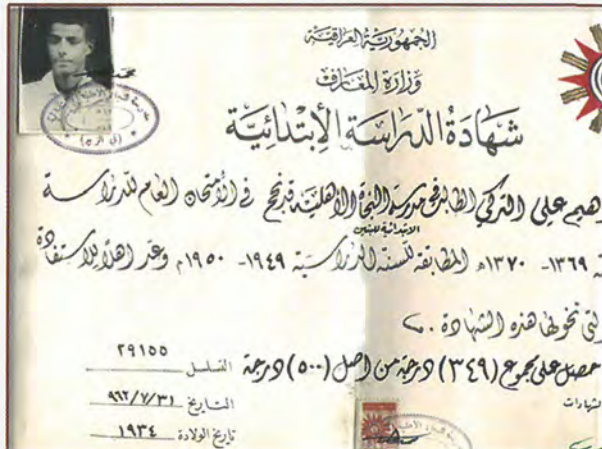 الجمهورية العراقية
وزارة المعارف
شهادة الدراسة الابتدائية
محمد
هيم علي التركي الطالب في مدرسة النجاة الأهلية قد نجح في الامتحان العام للدراسة
الابتدائية للبنين
١٣٦٩ - ١٣٧٠ هـ المطابقة للسنة الدراسية ١٩٤٩ - ١٩٥٠ م وعد اهلاً للاستفادة
التي تخولها هذه الشهادة .
حصل على مجموع (٣٤٩) درجة من اصل (٥٠٠) درجة
التسلسل ٢٩١٥٥
الشهادات
التاريخ ٩٦٢/٧/٣١
تاريخ الولادة ١٩٣٤